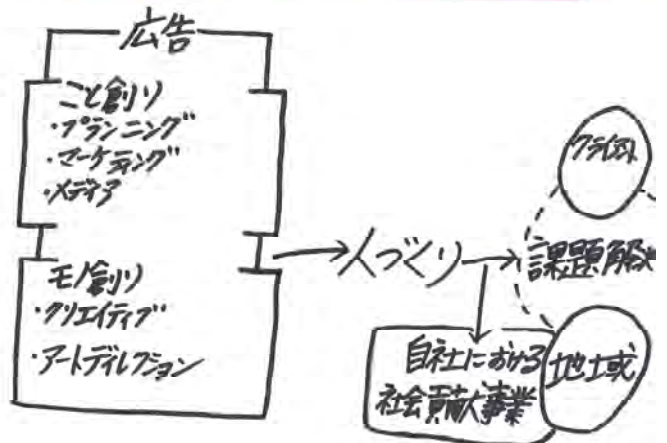 広告
こと創り
・プランニング
・マーケティング
・メディア
モノ創り
・クリエイティブ
・アートディレクション
人づくり
課題解決
自社における
社会貢献事業
地域